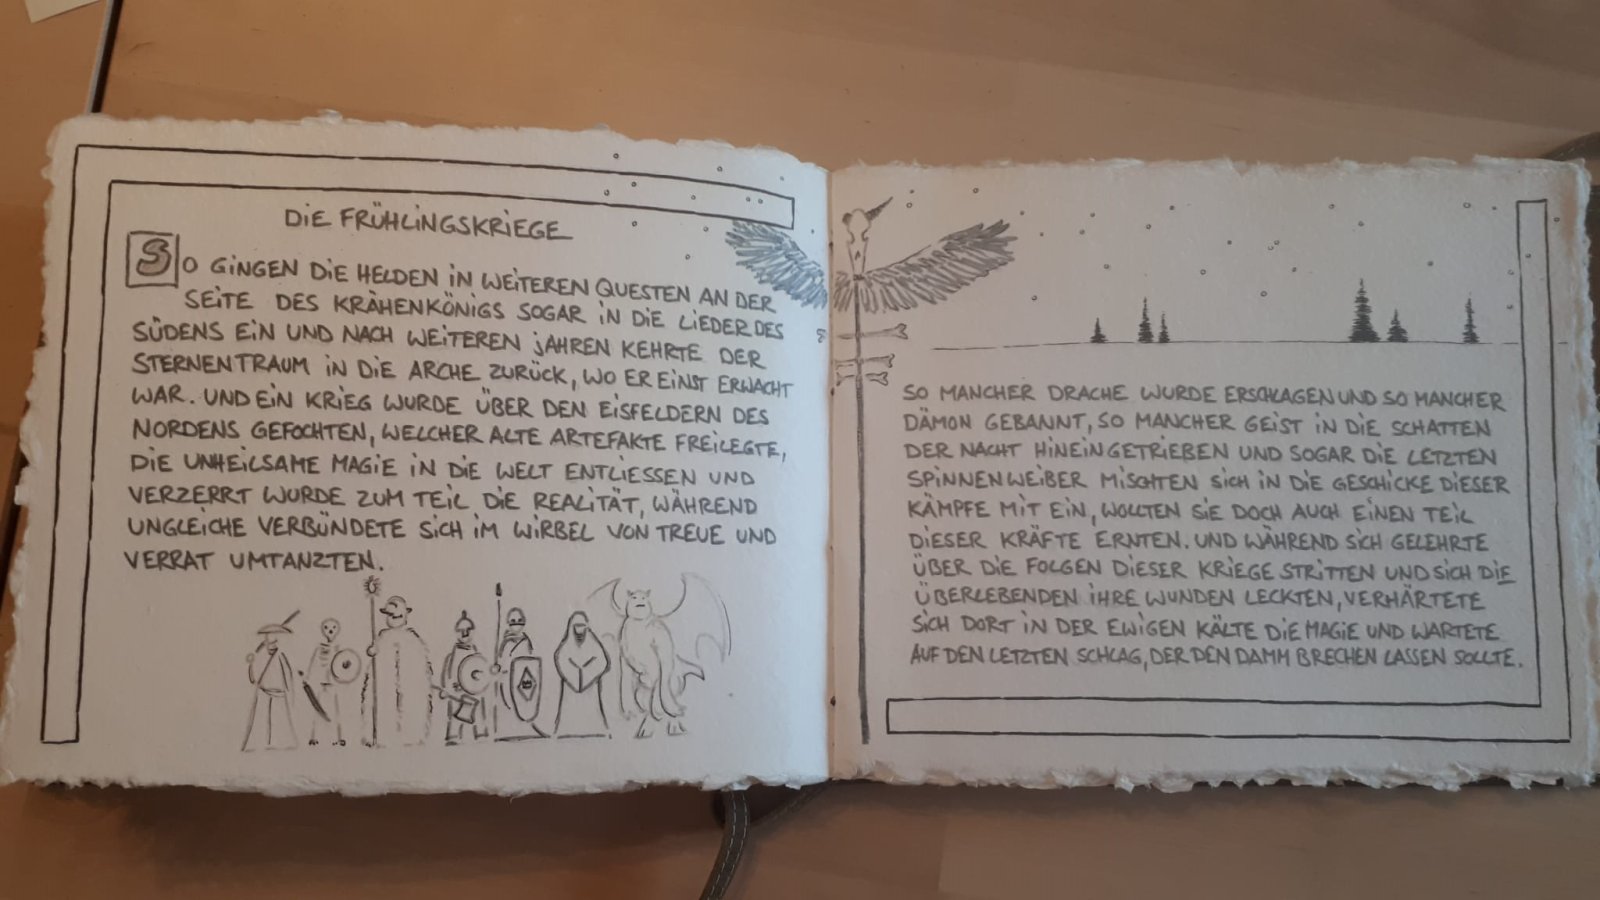 DIE FRÜHLINGSKRIEGE
SO GINGEN DIE HELDEN IN WEITEREN QUESTEN AN DER
SEITE DES KRÄHENKÖNIGS SOGAR IN DIE LIEDER DES
SÜDENS EIN UND NACH WEITEREN JAHREN KEHRTE DER
STERNENTRAUM IN DIE ARCHE ZURÜCK, WO ER EINST ERWACHT
WAR. UND EIN KRIEG WURDE ÜBER DEN EISFELDERN DES
NORDENS GEFOCHTEN, WELCHER ALTE ARTEFAKTE FREILEGTE,
DIE UNHEILSAME MAGIE IN DIE WELT ENTLIESSEN UND
VERZERRT WURDE ZUM TEIL DIE REALITÄT, WÄHREND
UNGLEICHE VERBÜNDETE SICH IM WIRBEL VON TREUE UND
VERRAT UMTANZTEN.
SO MANCHER DRACHE WURDE ERSCHLAGEN UND SO MANCHER
DÄMON GEBANNT, SO MANCHER GEIST IN DIE SCHATTEN
DER NACHT HINEINGETRIEBEN UND SOGAR DIE LETZTEN
SPINNENWEIBER MISCHTEN SICH IN DIE GESCHICKE DIESER
KÄMPFE MIT EIN, WOLLTEN SIE DOCH AUCH EINEN TEIL
DIESER KRÄFTE ERNTEN. UND WÄHREND SICH GELEHRTE
ÜBER DIE FOLGEN DIESER KRIEGE STRITTEN UND SICH DIE
ÜBERLEBENDEN IHRE WUNDEN LECKTEN, VERHÄRTETE
SICH DORT IN DER EWIGEN KÄLTE DIE MAGIE UND WARTETE
AUF DEN LETZTEN SCHLAG, DER DEN DAMM BRECHEN LASSEN SOLLTE.